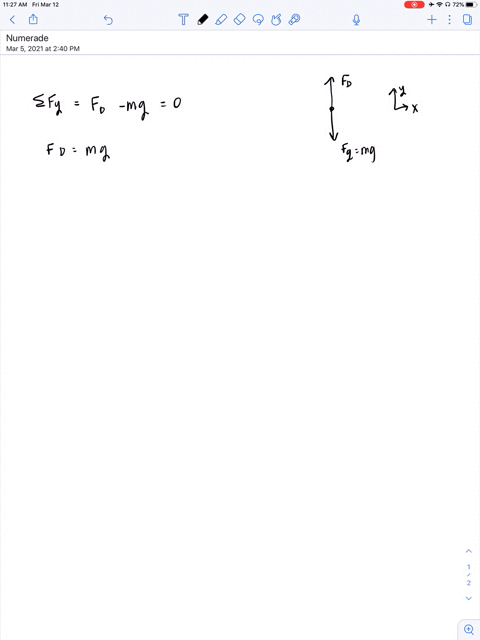 11:27 AM Fri Mar 12
72%
Numerade
Mar 5, 2021 at 2:40 PM
ΣFy = FD - mg = 0
FD = mg
FD
y
x
Fg = mg
1
/
2